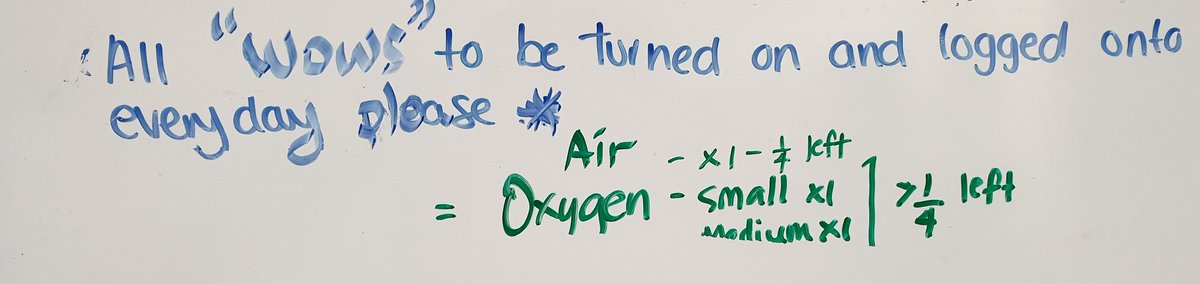 All "WOWS" to be turned on and logged onto
everyday please *
Air - x1 - ½ left
= Oxygen - small x1
medium x1
> 1/4 left